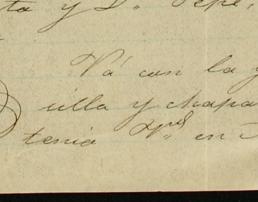 ta y D. Pepe,
Vá con la y
illa y chapa
tenia Vd. en